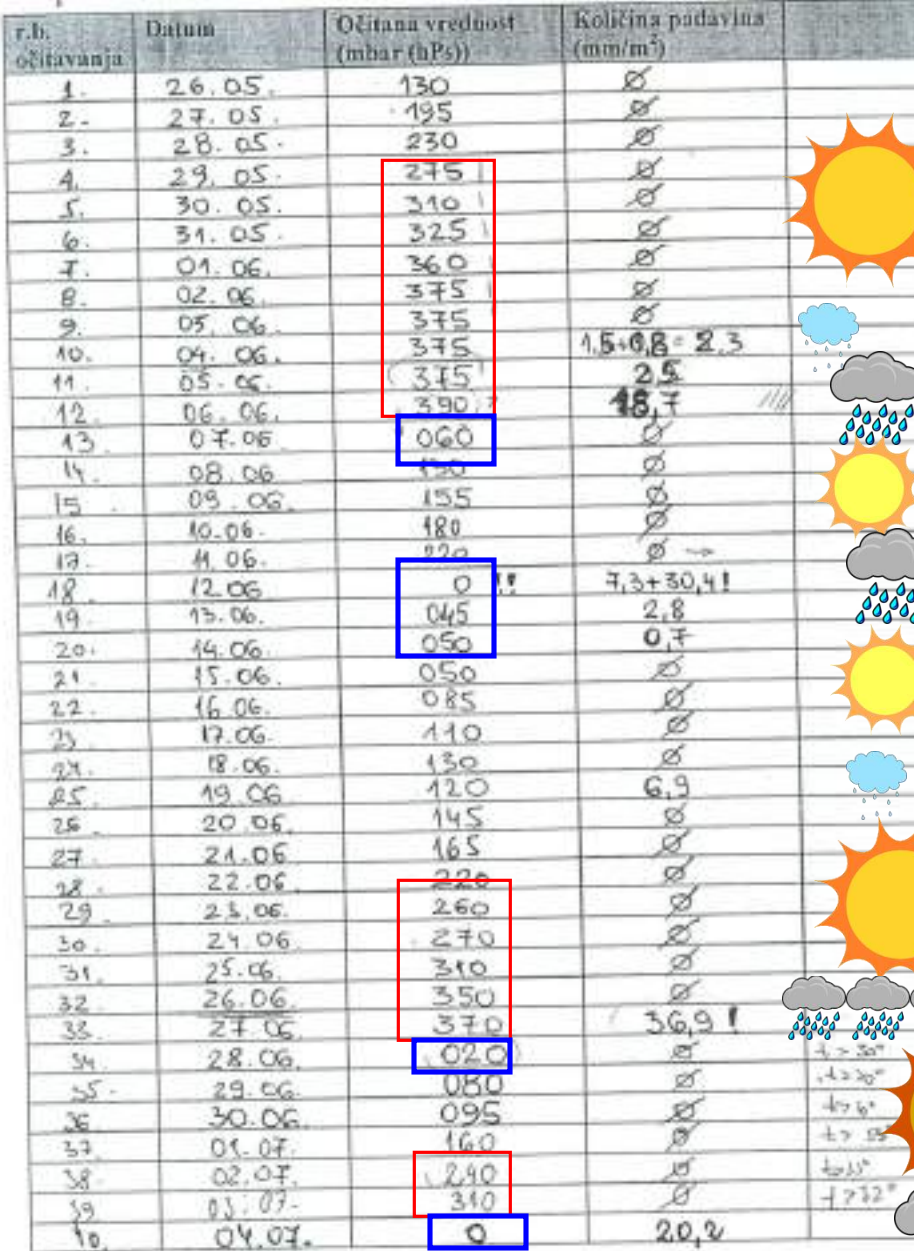 r.b. očitavanja Datum Očitana vrednost (mbar (hPs)) Količina padavina (mm/m²)
1. 26.05. 130 Ø
2. 27.05. 195 Ø
3. 28.05. 230 Ø
4. 29.05. 275 Ø
5. 30.05. 310 Ø
6. 31.05. 325 Ø
7. 01.06. 360 Ø
8. 02.06. 375 Ø
9. 03.06. 375 Ø
10. 04.06. 375 1,5+0,8=2,3
11. 05.06. 375 25
12. 06.06. 390 18,7
13. 07.06 060 Ø
14. 08.06 Ø
15. 09.06. 155 Ø
16. 10.06. 180 Ø
17. 11.06. 220 Ø →
18. 12.06 0 !! 7,3+30,4!
19. 13.06. 045 2,8
20. 14.06. 050 0,7
21. 15.06. 050 Ø
22. 16.06. 085 Ø
23 17.06. 110 Ø
24. 18.06. 130 Ø
25. 19.06 120 6,9
26 20.06. 145 Ø
27. 21.06 165 Ø
28. 22.06 220 Ø
29. 23.06. 260 Ø
30. 24.06. 270 Ø
31. 25.06. 310 Ø
32. 26.06. 350 Ø
33. 27.06 370 36,9!
34 28.06. 020 Ø t > 30°
35. 29.06. 080 Ø
36 30.06. 095 Ø
37. 01.07. 160 Ø
38. 02.07. 240 Ø
39 03.07. 310 Ø t > 32°
40 04.07. 0 20,2